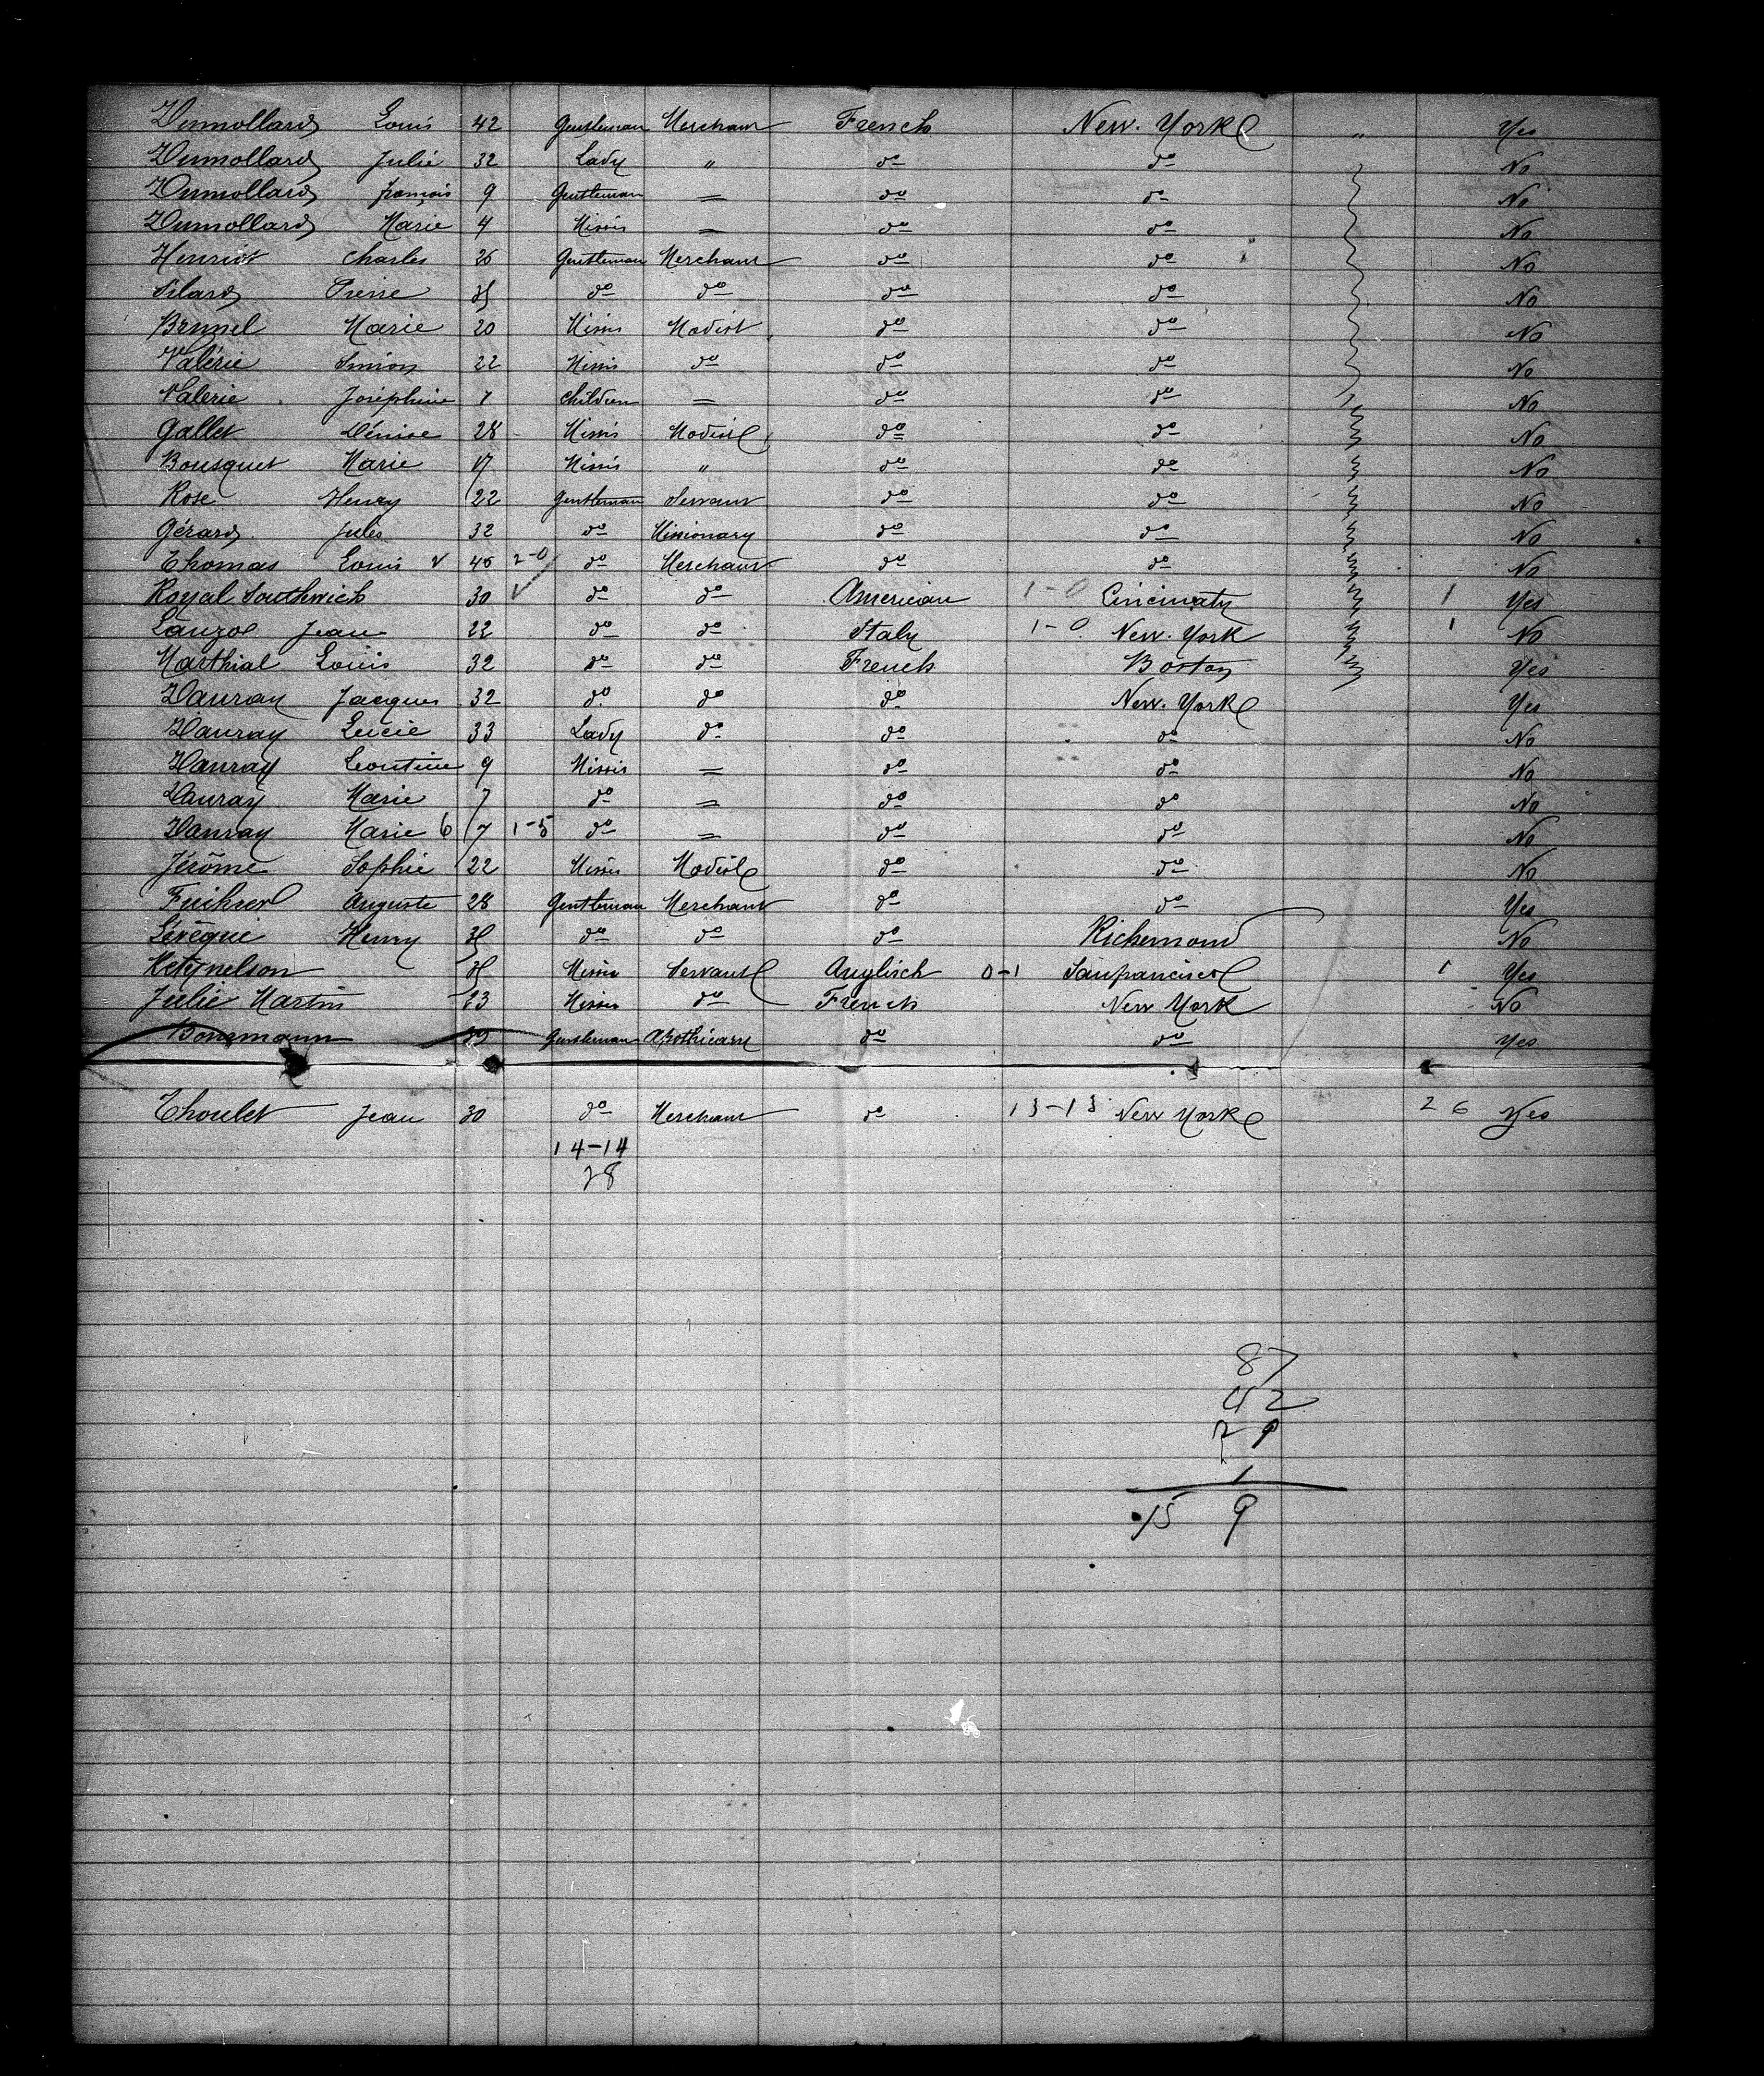 Dumollard Louis 42 Gentleman Merchant French New-York " Yes
Dumollard Julie 32 Lady " do do No
Dumollard françois 9 Gentleman = do do No
Dumollard Marie 4 Missis = do do No
Henriot Charles 26 Gentleman Merchant do do No
Pierre do do do do No
Brunel Marie 20 Missis Modist do do No
Valérie Simon 22 Missis do do do No
Valerie Joséphine Children = do do No
Gallet Dénise 28 Missis Modiste do do No
Bousquet Marie 17 Missis " do do No
Rose Henry 22 Gentleman Servant do do No
Gérard Jules 32 do Missionary do do No
Thomas Louis v 46 2-0 do Merchant do do No
Royal Southwich 30 v do do American 1-0 Cincinaty 1 Yes
Jean 22 do do Italy 1-0 New-York 1 No
Marthial Louis 32 do do French Boston Yes
Dauray Jacques 32 do do do New-York Yes
Dauray Lucie 33 Lady do do do No
Dauray Leontine 9 Missis = do do No
Dauray Marie 7 do = do do No
Dauray Marie 6 7 1-5 do = do do No
Jérôme Sophie 22 Missis Modiste do do No
Auguste 28 Gentleman Merchant do do Yes
Lévêque Henry do do do Richemond No
Missis Servant Anglisch 0-1 Sanfrancisco 1 Yes
Julie Martin 23 Missis do French New York No
Bonemann Gentleman Apothicary do do Yes
Thoulet Jean 30 do Merchant do 13-13 New York 26 Yes
14-14
28
87
42
29
1
159